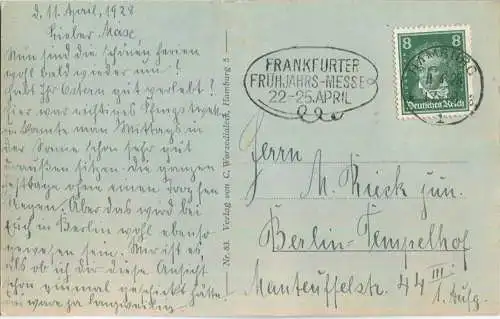 d. 11. April, 1928
Lieber Maxe,
Nun sind die schönen Ferien
wohl bald wieder um!
Habt Ihr Ostern gut verlebt?
Hier war richtiges Pfingstwetter
man konnte Mittags in
der Sonne schon sehr gut
draußen sitzen. Die ganzen
Festtage ohne einen Tropfen
Regen. Aber das wird bei
Euch in Berlin wohl ebenso
gewesen sein. Mir ist es,
als ob ich Dir diese Ansicht
schon einmal geschickt hätte,
es wäre ja langweilig.
Nr. 81. Verlag von C. Worzedialeck, Hamburg 5
FRANKFURTER
FRÜHJAHRS-MESSE
22.-25. APRIL
8 8
Deutsches Reich
HAMBURG
1
Herrn
M. Rieck jun.
Berlin-Tempelhof
Manteuffelstr. 44 III
1. Aufg.